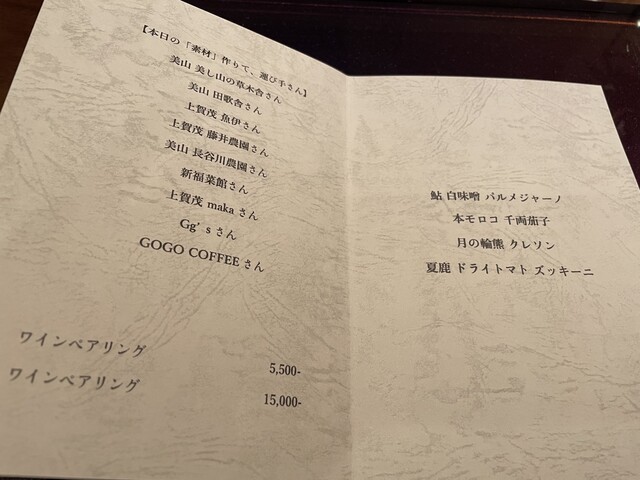 【本日の「素材」作りて、運び手さん】
美山 美し山の草木舎さん
美山 田歌舎さん
上賀茂 魚伊さん
上賀茂 藤井農園さん
美山 長谷川農園さん
新福菜館さん
上賀茂 makaさん
Gg’sさん
GOGO COFFEEさん
ワインペアリング 5,500-
ワインペアリング 15,000-
鮎 白味噌 パルメジャーノ
本モロコ 千両茄子
月の輪熊 クレソン
夏鹿 ドライトマト ズッキーニ